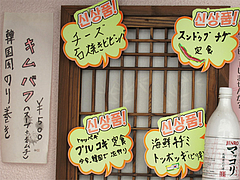 キムパプ
韓国風のり巻き
¥500
신상품!
チーズ
石焼きビビン
신상품!
スンドゥブチゲ
定食
신상품!
プルコギ定食
신상품!
海鮮チヂミ
トッポッキ
JINRO
マッコリ